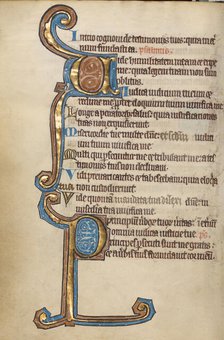 Initio cognoui de testimoniis tuis: quia in et
num fundasti ea. psalmus.
Vide humilitatem meam et eripe
me: quia legem tuam non sum
oblitus.
Iudica iudicium meum et
redime me: ppt eloquium tuum uiuifica me.
Longe a peccatoribus salus: quia iustificationes
tuas non exquisierunt.
Misericordie tue multe dne: secundum iudi
cium tuum uiuifica me.
Multi qui persecuntur me et tribulant me: a testi
moniis tuis non declinaui.
Vidi preuaricantes et tabescebam: quia eloquia
tua non custodierunt.
Vide quoniam mandata tua dilexi dne: in
misericordia tua uiuifica me.
Principium uerborum tuorum ueritas: in et
omnia iudicia iusticie tue. ps
Principes persecuti sunt me gratis:
et a uerbis tuis formidauit cor meum.